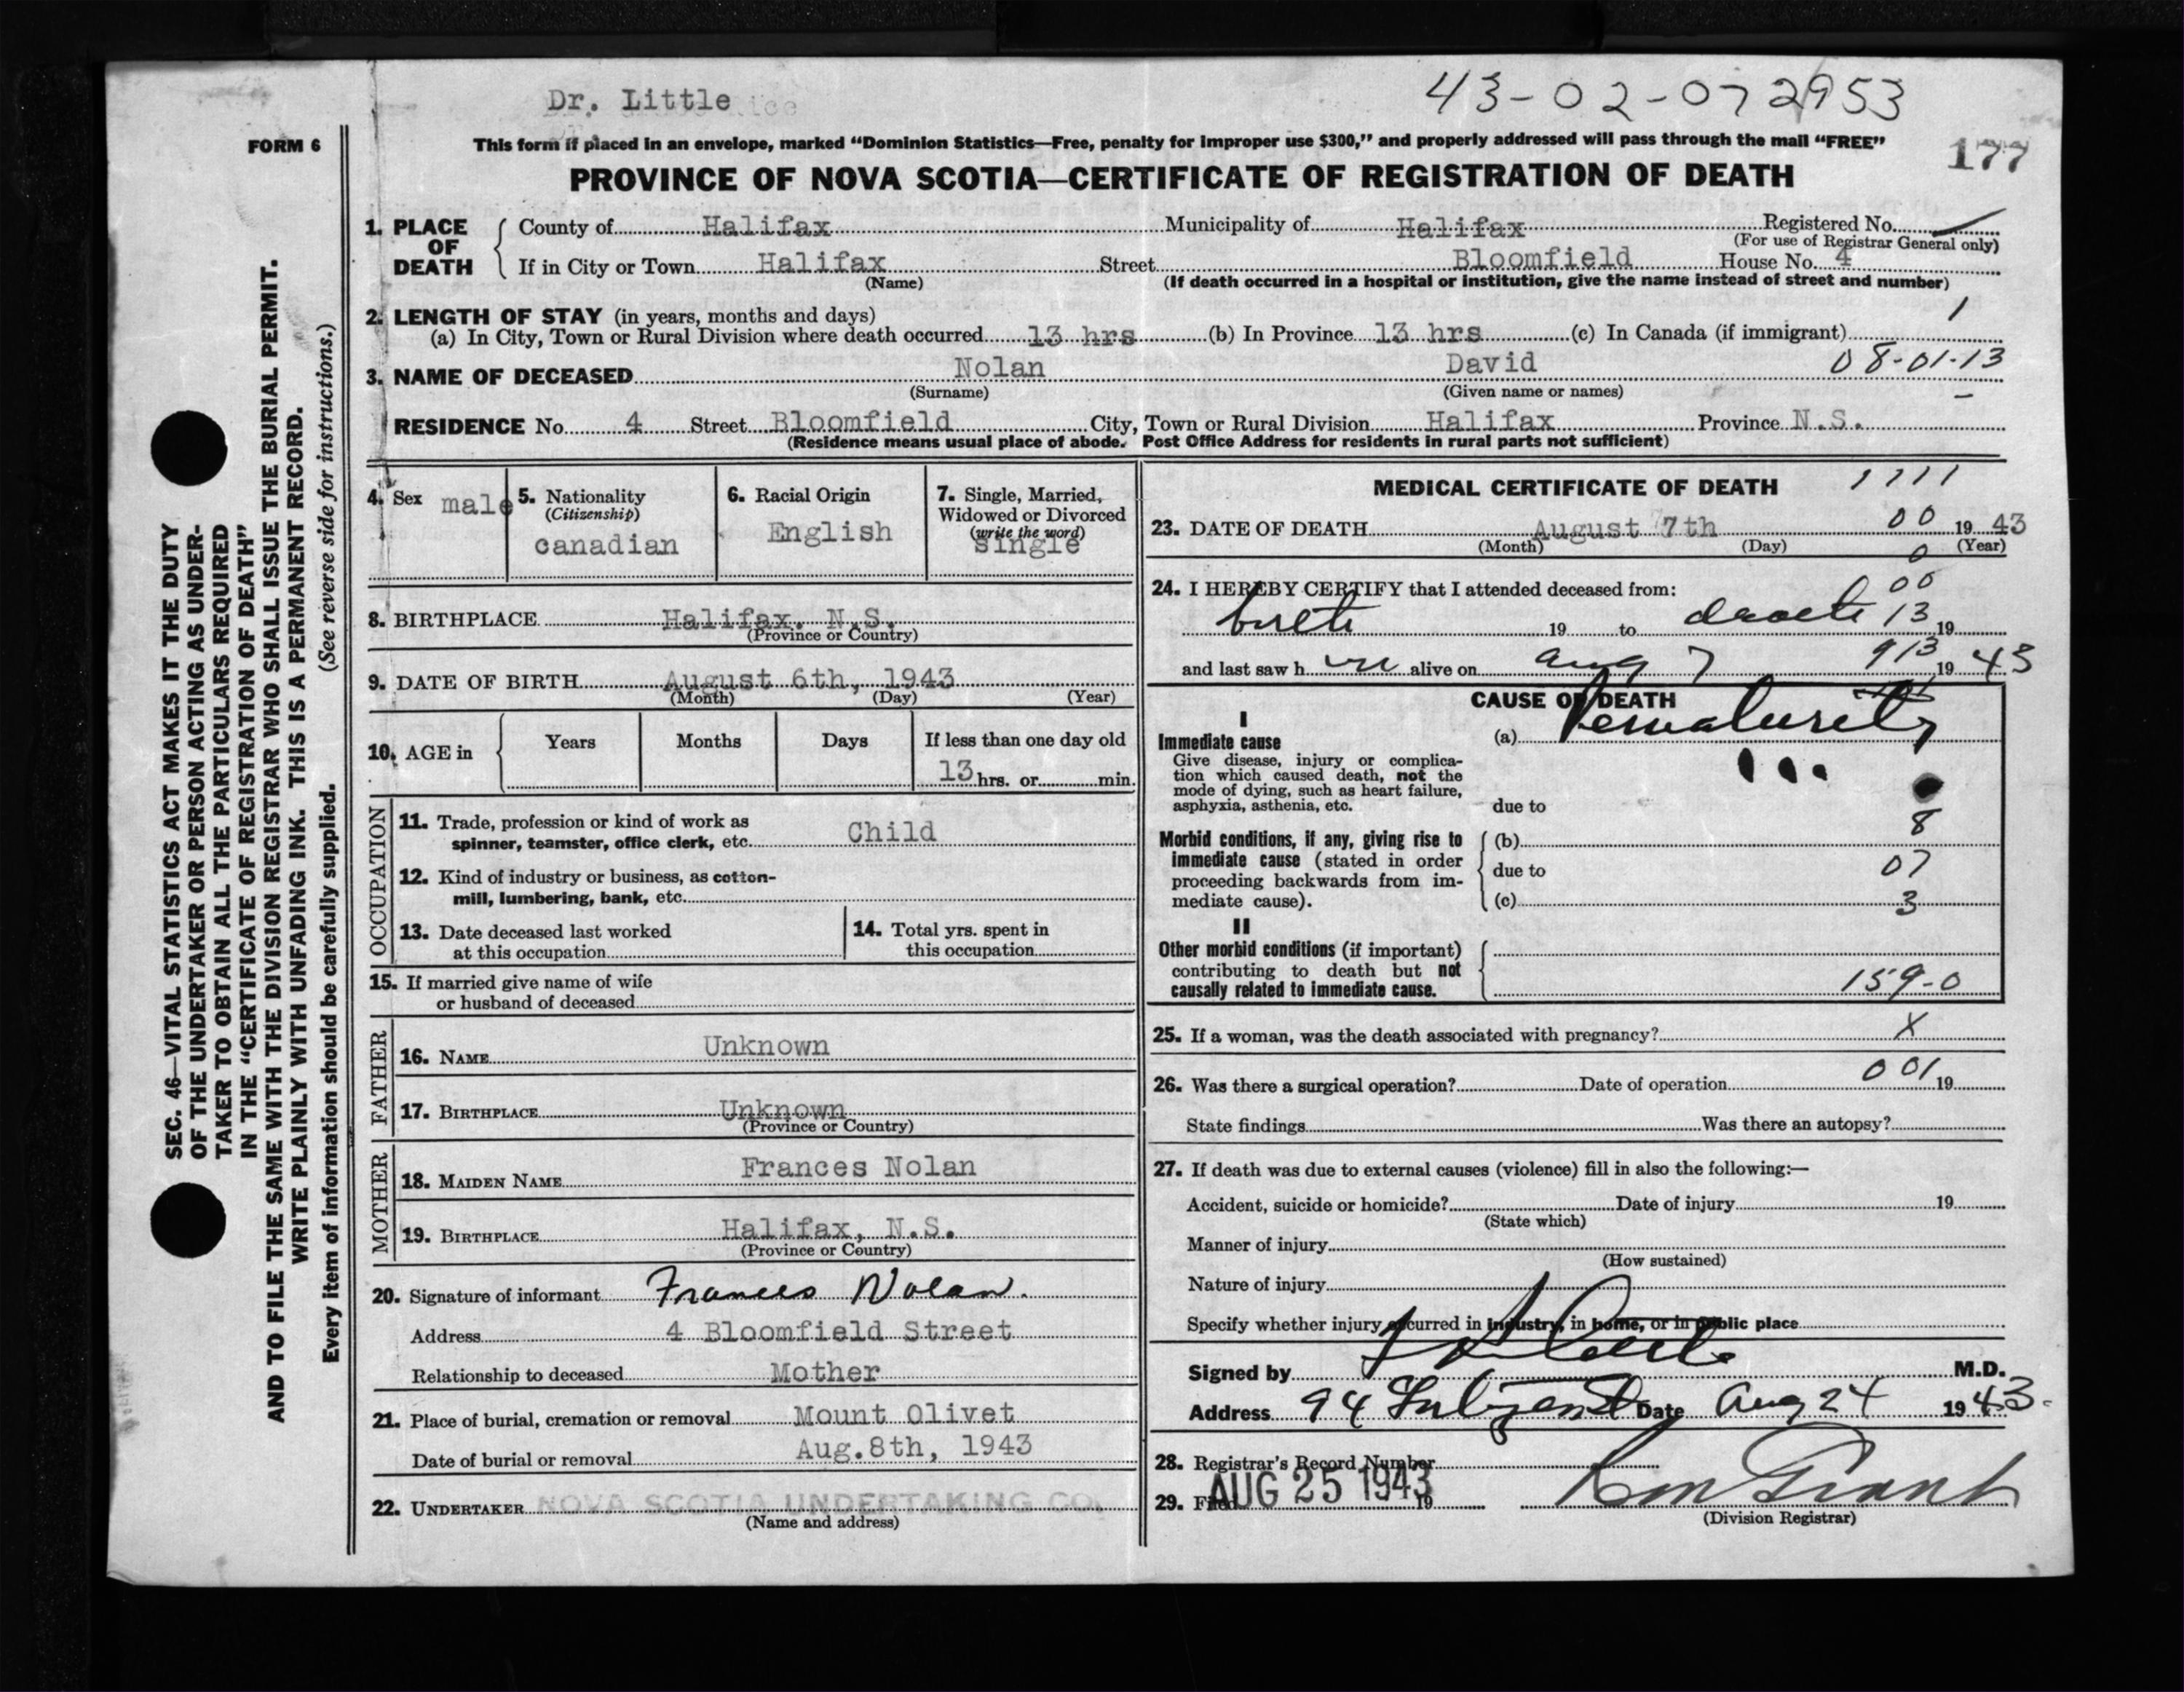 Dr. Little
43-02-072953
FORM 6
This form if placed in an envelope, marked “Dominion Statistics—Free, penalty for improper use $300,” and properly addressed will pass through the mail “FREE”
177
PROVINCE OF NOVA SCOTIA—CERTIFICATE OF REGISTRATION OF DEATH
1. PLACE OF DEATH
County of Halifax Municipality of Halifax Registered No.
(For use of Registrar General only)
If in City or Town Halifax Street Bloomfield House No. 4
(Name) (If death occurred in a hospital or institution, give the name instead of street and number)
2. LENGTH OF STAY (in years, months and days)
(a) In City, Town or Rural Division where death occurred 13 hrs (b) In Province 13 hrs (c) In Canada (if immigrant) 1
3. NAME OF DECEASED Nolan David 08-01-13
(Surname) (Given name or names)
RESIDENCE No. 4 Street Bloomfield City, Town or Rural Division Halifax Province N.S.
(Residence means usual place of abode. Post Office Address for residents in rural parts not sufficient)
4. Sex male
5. Nationality
(Citizenship)
canadian
6. Racial Origin
English
7. Single, Married,
Widowed or Divorced
(write the word)
single
8. BIRTHPLACE Halifax. N.S.
(Province or Country)
9. DATE OF BIRTH August 6th, 1943
(Month) (Day) (Year)
10. AGE in Years Months Days If less than one day old
13 hrs. or min.
OCCUPATION
11. Trade, profession or kind of work as
spinner, teamster, office clerk, etc. Child
12. Kind of industry or business, as cotton-
mill, lumbering, bank, etc.
13. Date deceased last worked
at this occupation
14. Total yrs. spent in
this occupation
15. If married give name of wife
or husband of deceased
FATHER
16. NAME Unknown
17. BIRTHPLACE Unknown
(Province or Country)
MOTHER
18. MAIDEN NAME Frances Nolan
19. BIRTHPLACE Halifax, N.S.
(Province or Country)
20. Signature of informant Frances Nolan.
Address 4 Bloomfield Street
Relationship to deceased Mother
21. Place of burial, cremation or removal Mount Olivet
Date of burial or removal Aug.8th, 1943
22. UNDERTAKER NOVA SCOTIA UNDERTAKING CO.
(Name and address)
MEDICAL CERTIFICATE OF DEATH 1711
23. DATE OF DEATH August 7th 00 1943
(Month) (Day) (Year)
0
24. I HEREBY CERTIFY that I attended deceased from: 00
birth 19 to death 13 19
and last saw h alive on Aug 7 913 1943
CAUSE OF DEATH
I
Immediate cause
Give disease, injury or complica-
tion which caused death, not the
mode of dying, such as heart failure,
asphyxia, asthenia, etc.
(a) Prematurity
due to
8
Morbid conditions, if any, giving rise to
immediate cause (stated in order
proceeding backwards from im-
mediate cause).
(b)
due to 07
(c) 3
II
Other morbid conditions (if important)
contributing to death but not
causally related to immediate cause.
159-0
25. If a woman, was the death associated with pregnancy? X
26. Was there a surgical operation? Date of operation 001 19
State findings Was there an autopsy?
27. If death was due to external causes (violence) fill in also the following:—
Accident, suicide or homicide? Date of injury 19
(State which)
Manner of injury
(How sustained)
Nature of injury
Specify whether injury occurred in industry, in home, or in public place
Signed by M.D.
Address 94 Date Aug 24 1943-
28. Registrar's Record Number
29. Filed AUG 25 1943 19
(Division Registrar)
SEC. 46—VITAL STATISTICS ACT MAKES IT THE DUTY
OF THE UNDERTAKER OR PERSON ACTING AS UNDER-
TAKER TO OBTAIN ALL THE PARTICULARS REQUIRED
IN THE “CERTIFICATE OF REGISTRATION OF DEATH”
AND TO FILE THE SAME WITH THE DIVISION REGISTRAR WHO SHALL ISSUE THE BURIAL PERMIT.
WRITE PLAINLY WITH UNFADING INK. THIS IS A PERMANENT RECORD.
Every item of information should be carefully supplied. (See reverse side for instructions.)